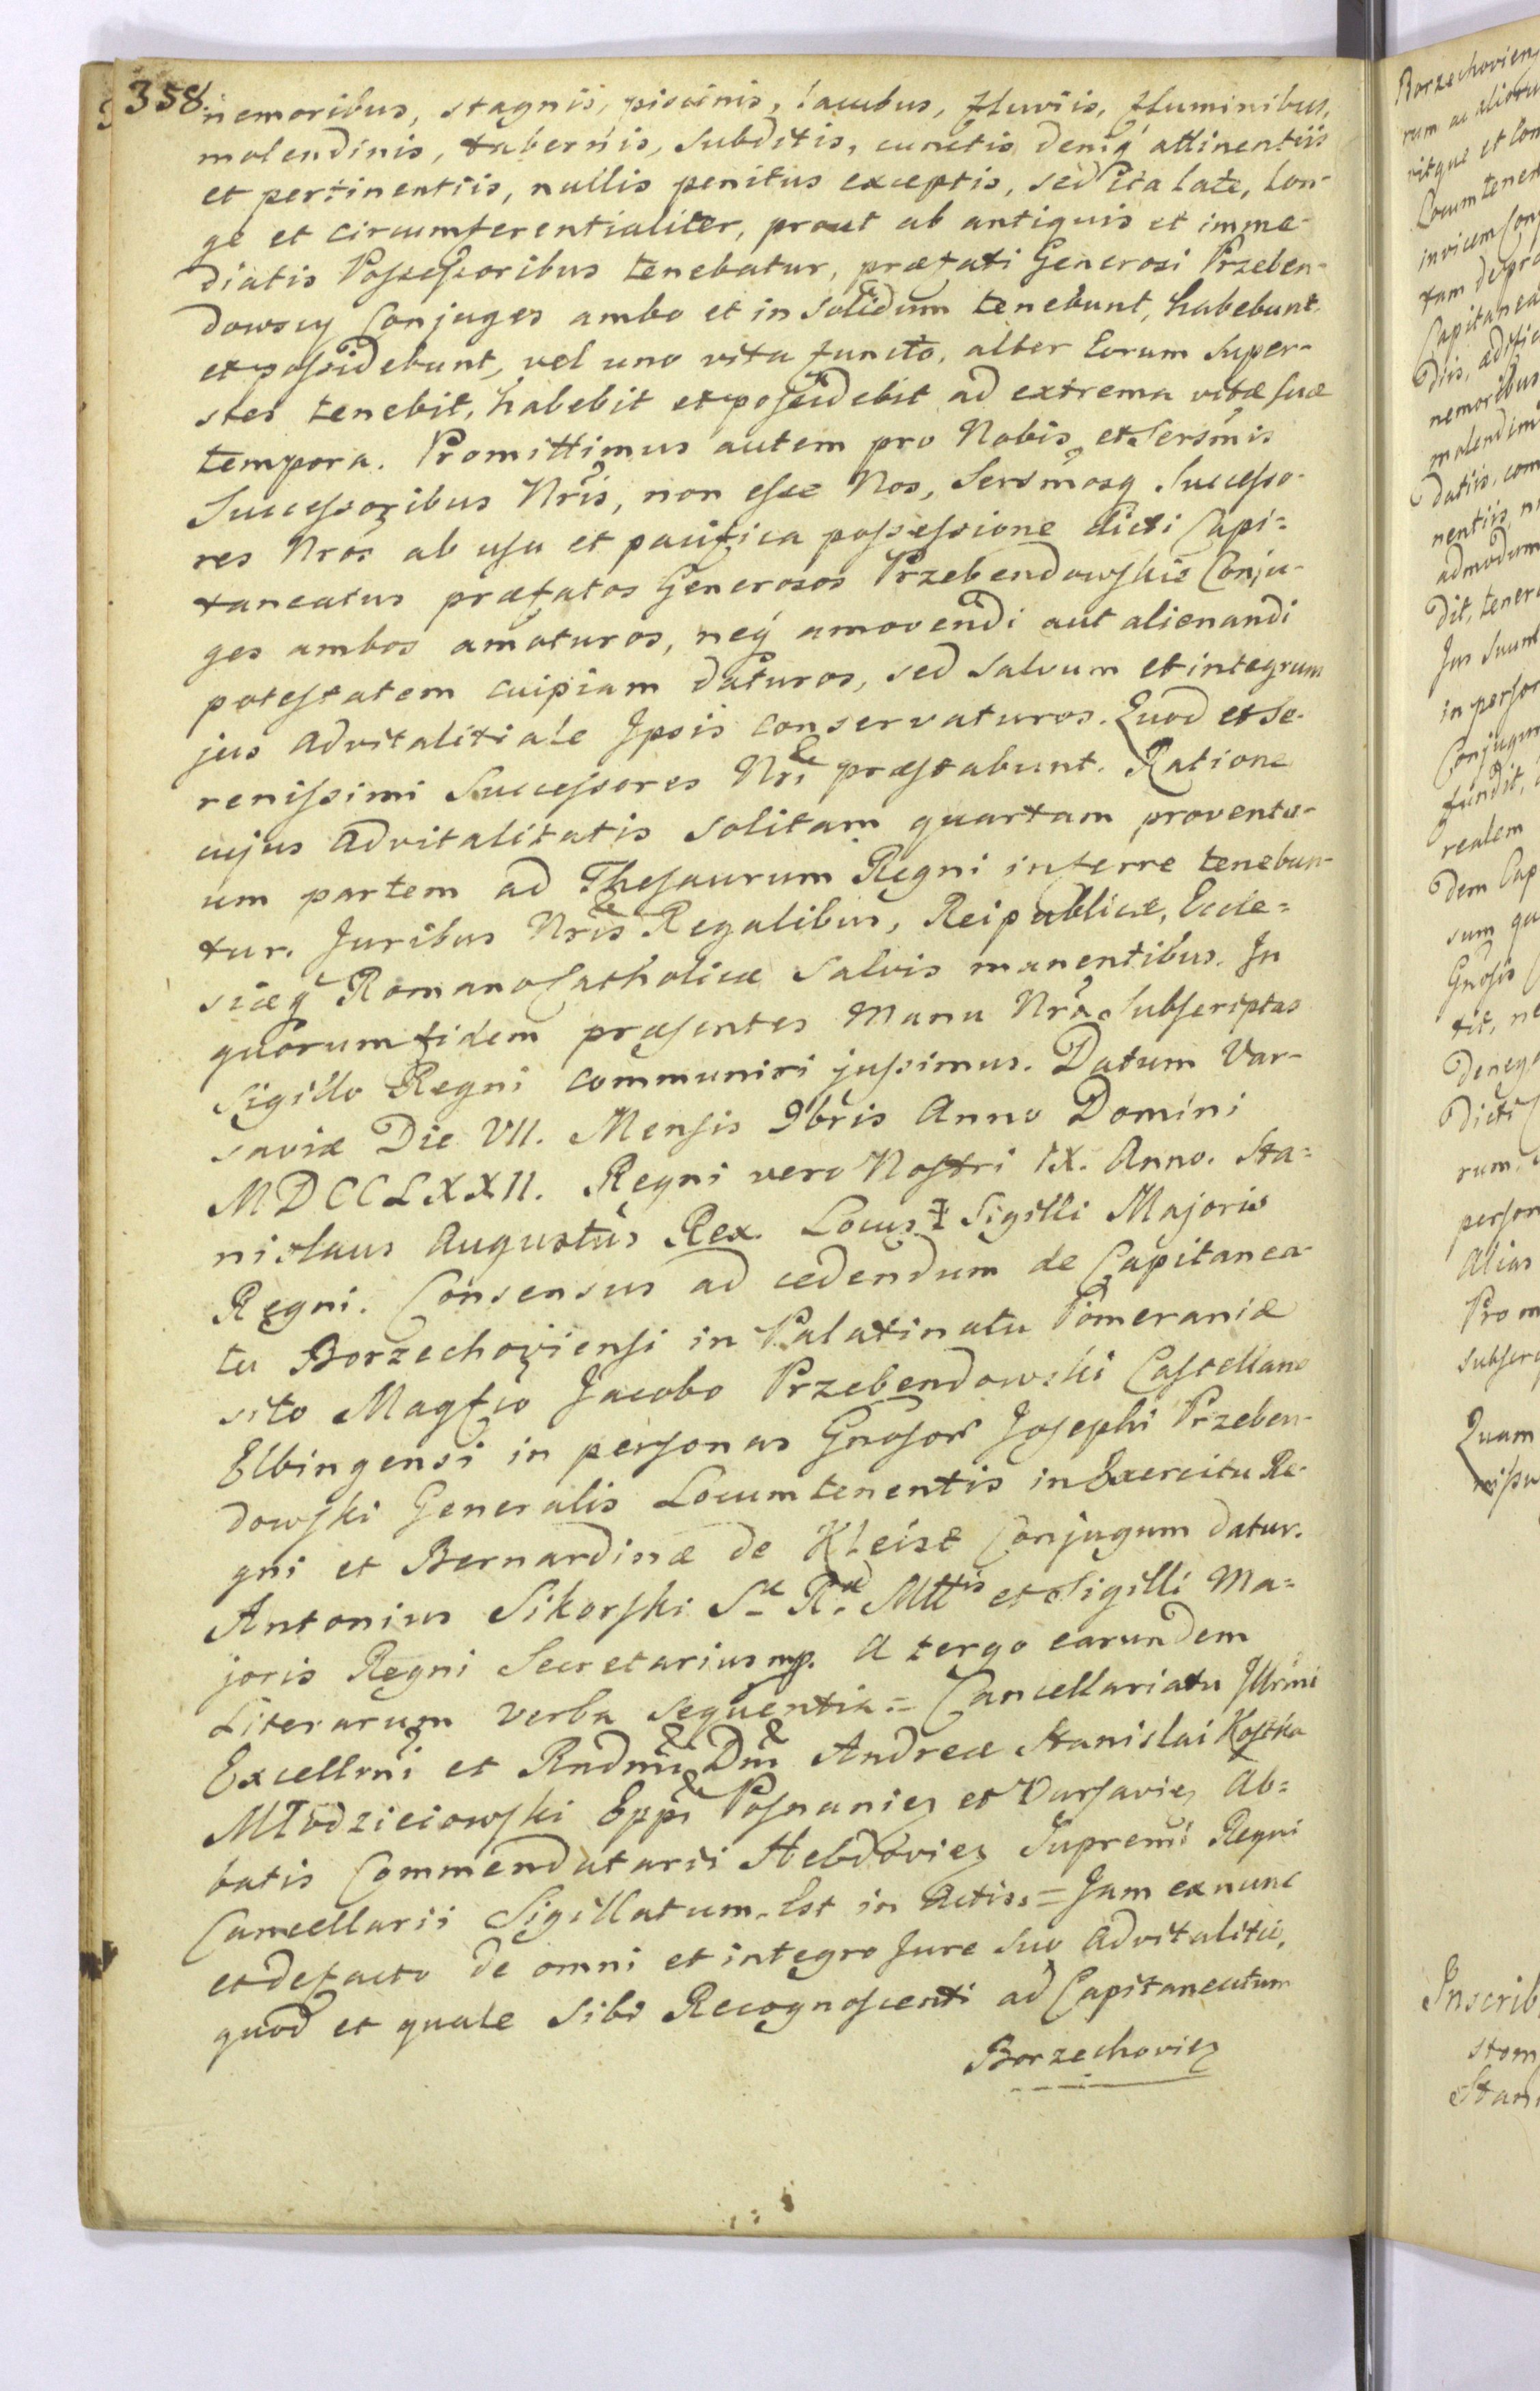 358.
nemoribus, stagnis, piscinis, lacubus, fluviis, fluminibus,
molendinis, tabernis, subditis, cunctis deniq́ attinentiis
et pertinentiis, nullis penitus exceptis, sed ita late, lon-
ge et circumferentialiter, prout ab antiquis et imme-
diatis Possessoribus tenebatur, præfati Generosi Przeben-
dowscy Conjuges ambo et in solidum tenebunt, habebunt
et possidebunt, vel uno vita functo, alter Eorum super-
stes tenebit, habebit et possidebit ad extrema vitæ suæ
tempora. Promittimus autem pro Nobis et Sersm̃is
Successoribus Nr̃is, non esse Nos, Sersm̃osq́ Successo-
res Nr̃os ab usu et pacifica possessione dicti Capi=
taneatus præfatos Generosos Przebendowskie Conju-
ges ambos amoturos, neq́ amovendi aut alienandi
potestatem cuipiam daturos, sed salvum et integrum
jus advitalitiale Ipsis conservaturos. Quod et Se-
renissimi Successores Nr̃i præstabunt. Ratione
cujus advitalitatis solitam quartam proventu-
um partem ad Thesaurum Regni inferre tenebun-
tur. Juribus Nr̃is Regalibus, Reipublicæ, Eccle=
siæq́ Romano Catholicæ salvis manentibus. In
quorum fidem præsentes Manu Nr̃a subscriptas
Sigillo Regni communiri jussimus. Datum Var-
saviæ Die VII. Mensis 9bris Anno Domini
MDCCLXXII. Regni vero Nostri IX. Anno. Sta=
nislaus Augustus Rex. Locus ‡ Sigilli Majoris
Regni. Consensus ad cedendum de Capitanea-
tu Borzechoviensi in Palatinatu Pomeraniæ
sito Magfco Jacobo Przebendowski Castellano
Elbingensi in personas Gnosor Josephi Przeben-
dowski Generalis Locumtenentis in Exercitu Re-
gni et Bernardinæ de Kleist Conjugum datur.
Antonius Sikorski Sæ Ræ Mttis et Sigilli Ma=
joris Regni Secretarius mp. A tergo earundem
Literarum verba sequentia = Cancellariatu Illrm̃i
Excellm̃i et Rndm̃i Dm̃i Andreæ Stanislai Kostka
Młodzieiowski Epp̃i Posnanieꝫ et Varsavieꝫ Ab=
batis Commendatarii Hebdovieꝫ Supremi Regni
Cancellarii Sigillatum. Est in Actis. = Jam ex nunc
et de facto de omni et integro Jure suo advitalitio,
quod et quale sibi Recognoscenti ad Capitaneatum
Borzechovieꝫ
Borzechovien
rum ac aliorum
vitque et
Locum tenen
invicem
tam
Capitanea
diis, ædific
nemoribus
molendini
datiis, com
nentiis, n
admodum
dit, tener
Jus suum
in person
Conjugum
fundit,
realem
dem Cap
sum qu
Gnosis
tit, ne
deneg
dicti
rum,
person
alias
Prom
subscr
Quam
Inscrib
stom
Stan